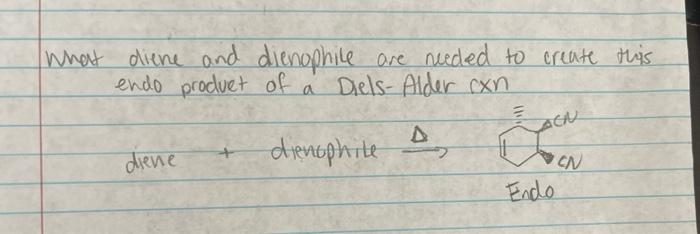 What diene and dienophile are needed to create this
endo product of a Diels-Alder rxn
diene + dienophile Δ
CN
CN
Endo